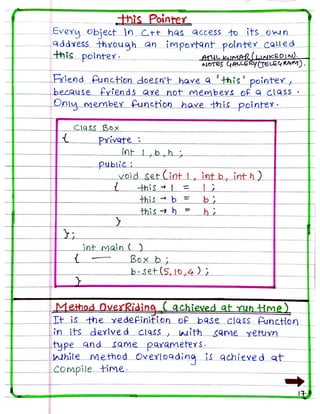 this Pointer
Every Object In C++ has access to its own
address through an important pointer called
this pointer.
ATUL KUMAR (LINKEDIN).
NOTES GALLERY(TELEGRAM).
Friend function doesn't have a 'this' pointer,
because friends are not members of a class.
Only member function have this pointer.
Class Box
{ private :
int l , b , h ;
public :
void set (int l , int b, int h )
{ this → l = l ;
this → b = b ;
this → h = h ;
}
};
int main ( )
{ Box b ;
b.set(5,10,4) ;
}
Method OverRiding ( achieved at run time )
It is the redefinition of base class function
in its derived class , with same return
type and same parameters.
While Method Overloading is achieved at
compile time.
17